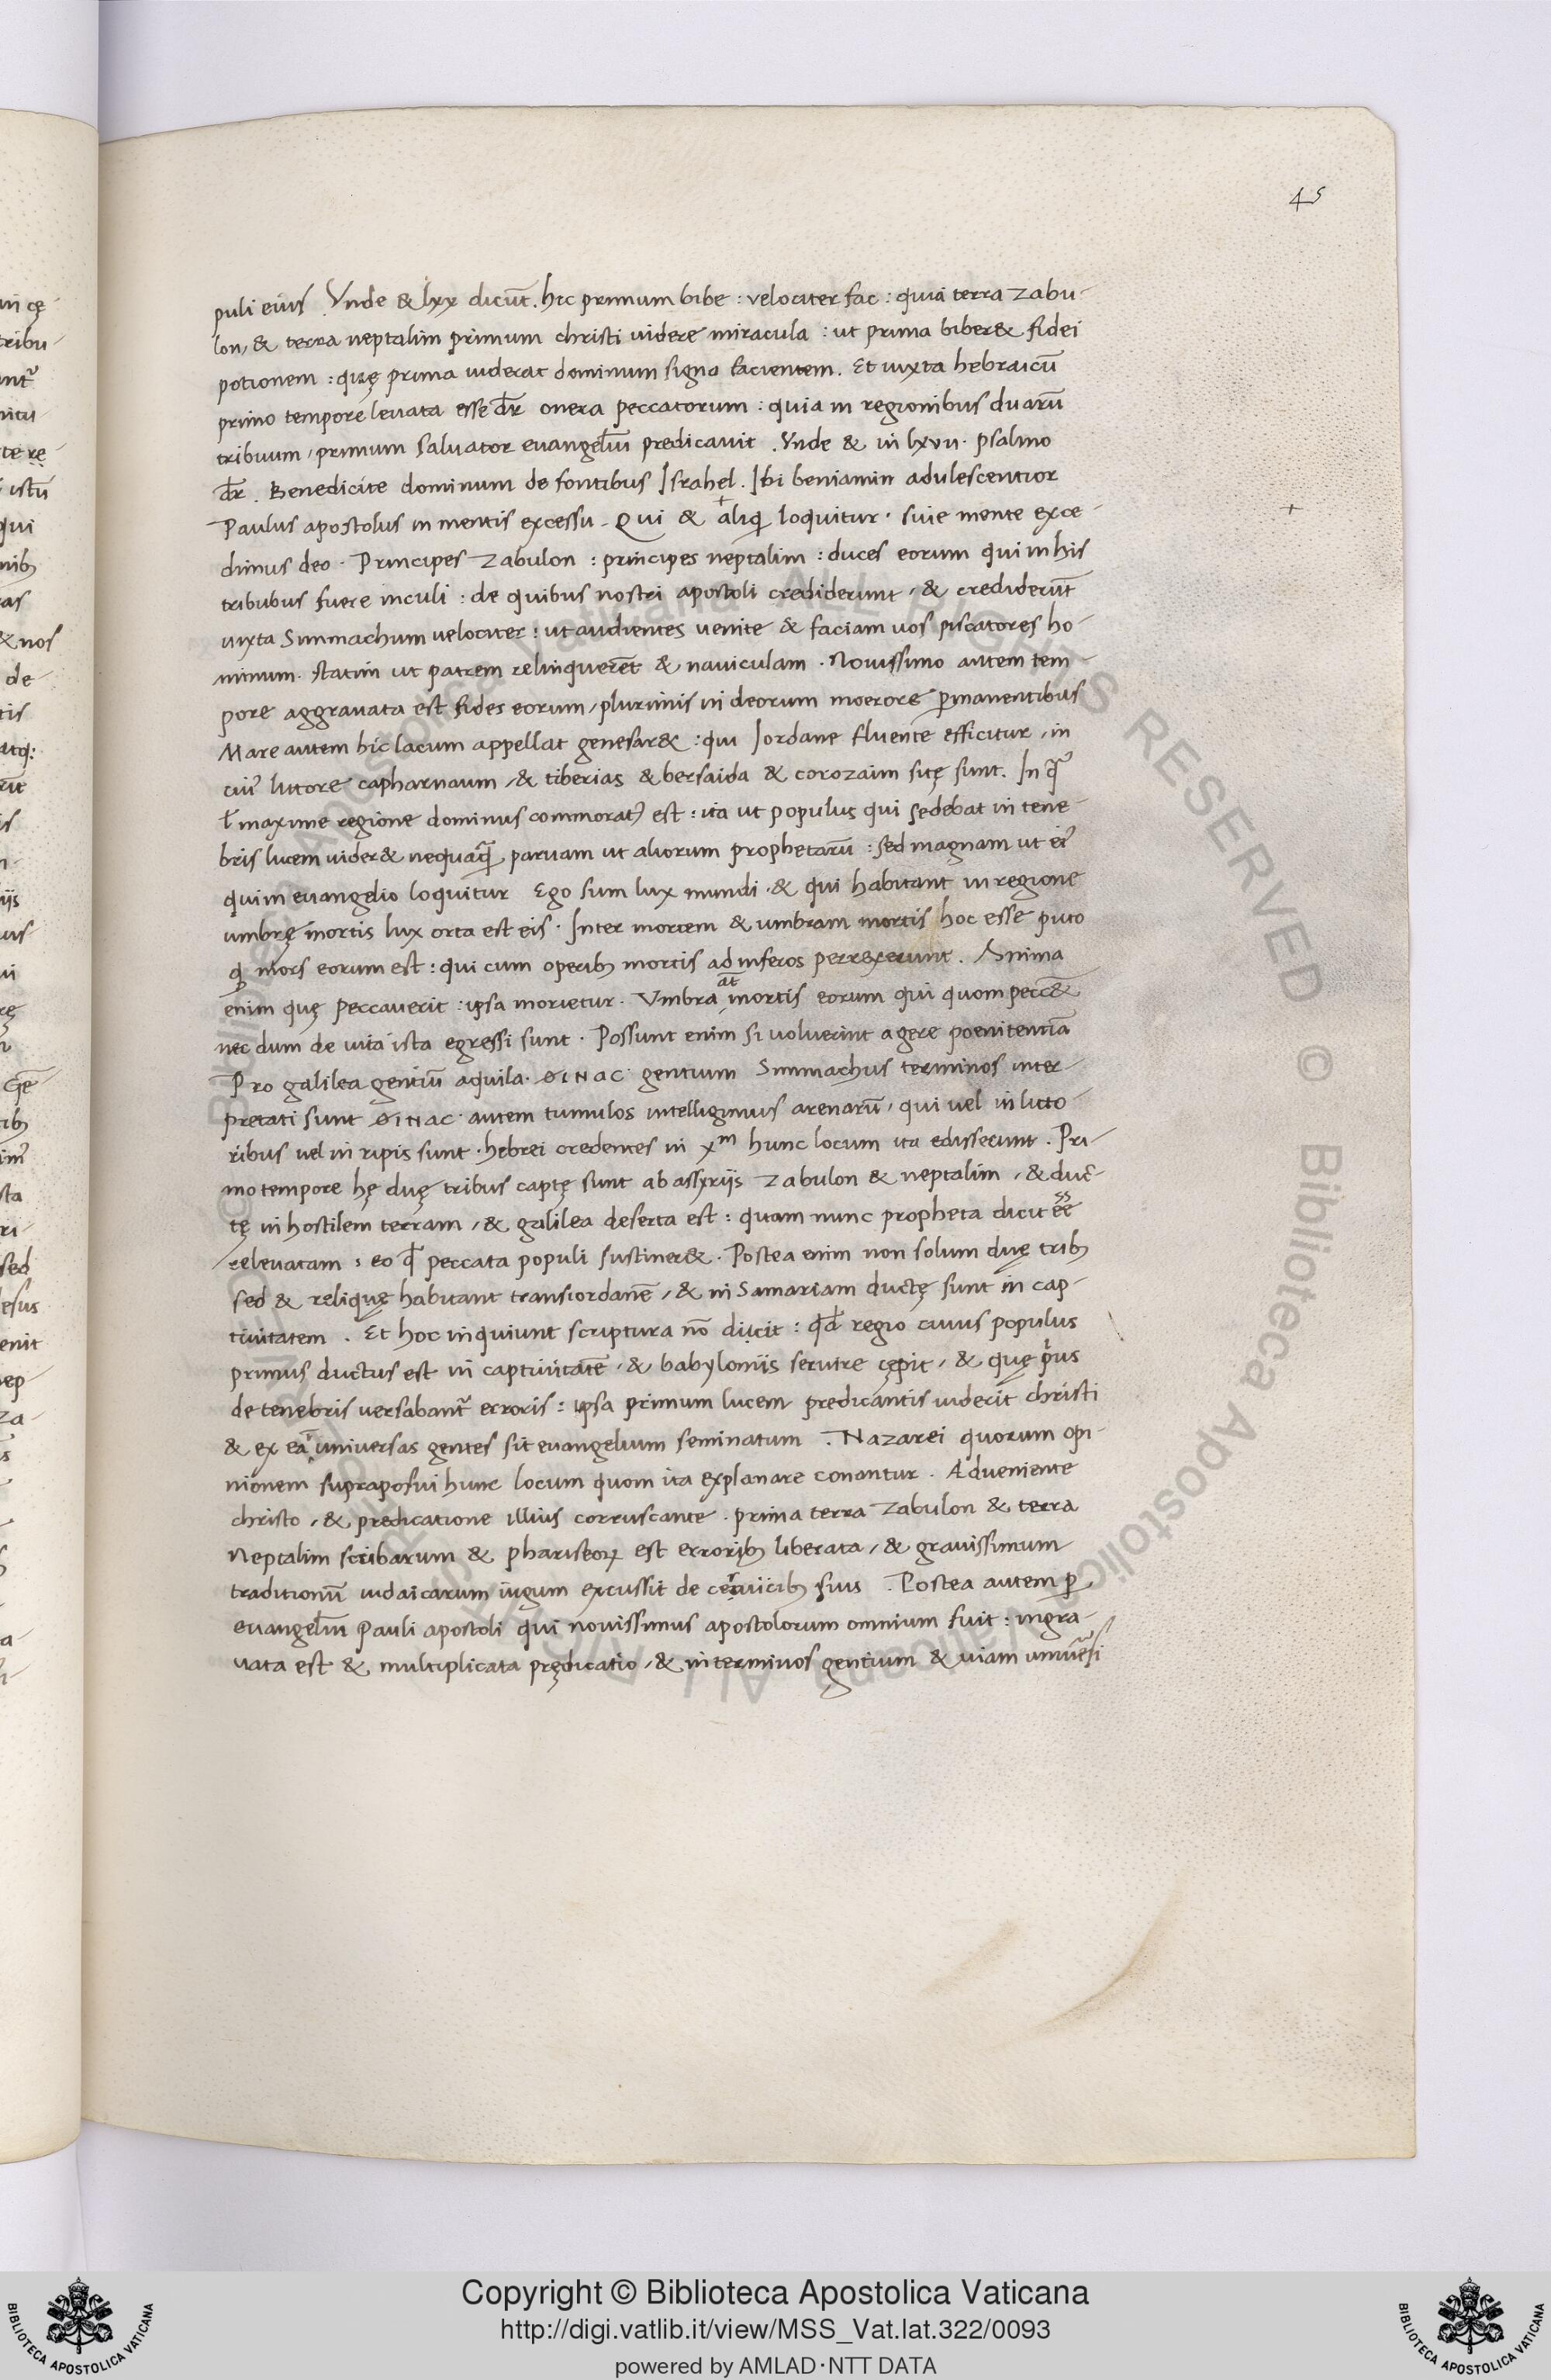 45
puli eius. Vnde & lxx dicūt. hic primum bibe : velociter fac : quia terra zabu-
lon, & terra neptalim primum christi uidere miracula : ut prima biber& fidei
potionem : quę prima uiderat dominum signa facientem. Et iuxta hebraicū
primo tempore leuata esse dr̄ onera peccatorum : quia in regionibus duarū
tribuum, primum saluator euangeliū predicauit. Vnde & in lxvii. psalmo
dr̄. Benedicite dominum de fontibus Israhel. Ibi beniamin adulescentior
Paulus apostolus in mentis excessu. Qui & aliq̨ loquitur. siue mente exce-
dimus deo. Principes zabulon : principes neptalim : duces eorum qui in his
tribubus fuere inculi : de quibus nostri apostoli crediderunt, & crediderūt
iuxta Simmachum velociter : ut audientes uenite & faciam uos piscatores ho-
minum. statim ut patrem relinquerēt & nauiculam. Nouissimo autem tem-
pore aggrauata est fides eorum, plurimis iudeorum moerore ꝑmanentibus
Mare autem hic lacum appellat genesar& : qui Iordane fluente efficitur, in
cui⁹ littore capharnaum, & tiberias & bersaida & corozaim sitę sunt. In q̄
ł maxime regione dominus commorat⁹ est : ita ut populus qui sedebat in tene-
bris lucem uider& nequaq̄ paruam ut aliorum prophetarū : sed magnam ut ei⁹
qui in euangelio loquitur Ego sum lux mundi. & qui habitant in regione
umbrę mortis lux orta est eis. Inter mortem & umbram mortis hoc esse puto
ꝙ mors eorum est : qui cum operibꝫ mortis ad inferos perrexerunt. Anima
enim quę peccauerit : ipsa morietur. Vmbra at̄ mortis eorum qui quom pecc&
nec dum de uita ista egressi sunt. Possunt enim si uoluerint agere poenitentiā
Pro galilea gentiū aquila. ΘINAC gentium Simmachus terminos inter-
pretati sunt ΘINAC. autem tumulos intelligimus arenarū, qui uel in litto-
ribus uel in ripis sunt. hebrei credentes in xᵐ hunc locum ita edisserunt. Pri-
mo tempore hę duę tribus captę sunt ab assyriis zabulon & neptalim, & duc-
tę in hostilem terram, & galilea deserta est : quam nunc propheta dicit ēē
releuatam : eo ꝙ peccata populi sustiner&. Postea enim non solum duę tribꝫ
sed & reliquę habitant transiordanē, & in Samariam ductę sunt in cap-
tiuitatem. Et hoc inquiunt scriptura nō dicit : qd̄ regio cuius populus
primus ductus est in captiuitatē, & babyloniis seruire cępit, & quę prius
de tenebris uersabant᷑ erroris : ipsa primum lucem predicantis uiderit christi
& ex ea uniuersas gentes sit euangelium seminatum. Nazarei quorum opi-
nionem supraposui hunc locum quom ita explanare conantur. Adueniente
christo, & predicatione illius corruscante. prima terra zabulon & terra
Neptalim scribarum & phariseoꝝ est erroribꝫ liberata, & grauissimum
traditionū iudaicarum iugum excussit de ceruicibꝫ suis. Postea autem ꝑ
euangeliū Pauli apostoli qui nouissimus apostolorum omnium fuit : ingra-
uata est & multiplicata prędicatio, & in terminos gentium & uiam uniuersi
Copyright © Biblioteca Apostolica Vaticana
http://digi.vatlib.it/view/MSS_Vat.lat.322/0093
powered by AMLAD·NTT DATA